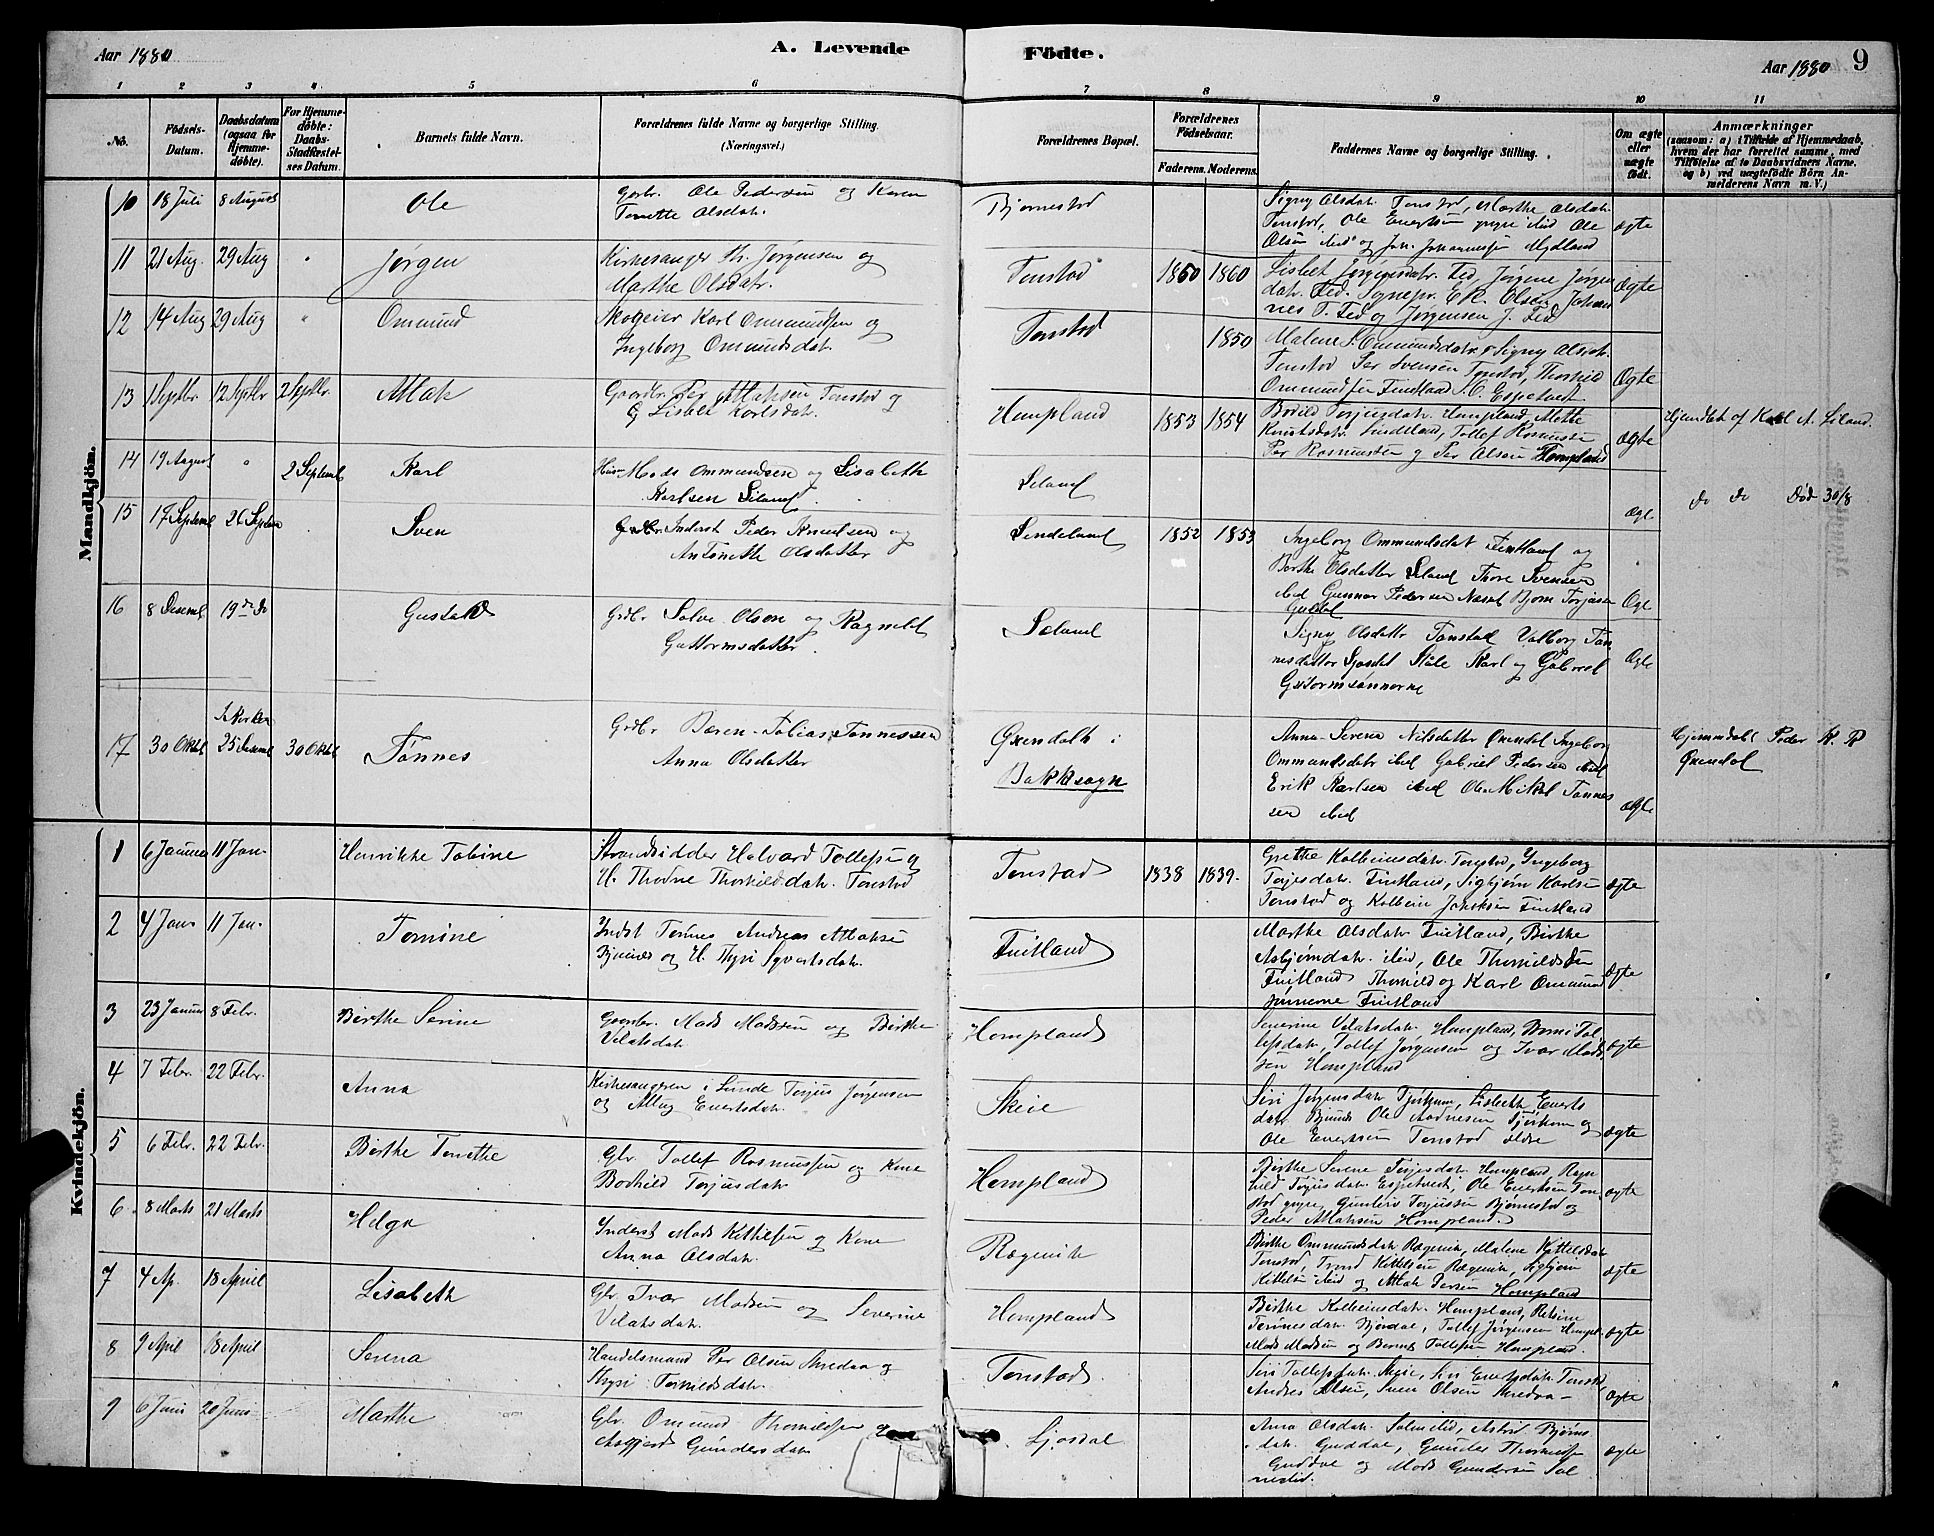 Aar 1880 A. Levende Födte. Aar 1880 9
1 2 3 4 5 6 7 8 9 10 11
No.
Födsels-Datum.
Daabsdatum (ogsaa for Hjemme-döbte).
For Hjemme-döbte: Daabs-Stadfæstel-ses Datum.
Barnets fulde Navn.
Forældrenes fulde Navne og borgerlige Stilling.
(Næringsvei.)
Forældrenes Bopæl.
Forældrenes Födselsaar.
Faderens. Moderens.
Faddernes Navne og borgerlige Stilling.
Om ægte eller uægte födt.
Anmærkninger
(saasom: a) i Tilfælde af Hjemmedaab, hvem der har forrettet samme, med Tilföielse af to Daabsvidners Navne, og b) ved uægtefödte Börn An-melderens Navn m. V.)
Mandkjön.
10 18 Juli 8 August Ole Gbr. Ole Pedersen og Karen
Tonette Olsdatr. Bjørnestad
Signy Olsdatr. Tonstad, Marthe Olsdatr.
Tonstad, Ole Evertsen yngre ibid Ole
Olsen ibid og Joh. Johannesen Mydland ægte
11 21 Aug. 29 Aug " Jørgen Kirkesanger Th. Jørgensen og
Marthe Olsdatr. Tonstad 1860 1860
Lisbet Jørgensdatr. Fed, Jørgine Jørgens
datr. Fed. Sognepr. E R. Olsen, Johan
nes T. Fed og Jørgensen J. Fed Ægte
12 14 Aug 29 Aug " Ommund Skogeier Karl Ommundsen og
Ingeborg Ommundsdatr. Tonstad 1850
Malene S. Ommundsdatr. Signy Olsdatr.
Tonstad Per Svensen Tonstad, Thorkild
Ommundsen Fintland S. O. Espetveit Ægte
13 1 Septbr. 12 Septbr 2 Septbr. Atlak Gaardbr. Per Atlaksen Tonstad og
Lisbet Karlsdatr. Hompland 1853 1854
Bodild Torjusdatr. Hompland, Mette
Knutsdatr. Sindland, Tollef Rasmusen
Per Rasmusen og Per Olsen Hompland Ægte Hjemdbt af Karl A. Liland.
14 19 August " 2 Septemb Karl Husm Mads Ommundsen og Lisabeth
Karlsen Liland. Liland Ægt do do Død 30/8
15 17 Septemb 26 Septem Sven Inderst Peder Knudsen og
Antonette Olsdatter Sindeland 1852 1853
Ingeborg Ommundsdat Fintland og
Berthe Olsdatter Liland Thore Svensen
ibid Gunnar Pedersen Næset Bjørn Torjusen
Guddal Ægt
16 8 Desemb 19 de do Gustav Grdbr Salve Olsen og Ragnild
Guttormsdatter. Liland
Signy Olsdattr Tonstad Valborg Tøn
nesdatter Ljosdal Ståle Karl og Gabriel
Guttormsønnerne Ægte
17 30 Oktob i Kirken 25 Desemb 30 Oktob Tønnes Grdbr Bæren Tobias Tønnessen
Anna Olsdatter Øxendahl i
Bakkesogn
Anna Serena Nilsdatter Øxendal Ingeborg
Ommundsdatr ibid Gabriel Pedersen ibid
Erik Karlsen ibid Ole Mikal Tønnes
sen ibid Ægte Hjemdøbt Peder K. R
Øxendal
Kvindekjön.
1 6 Januar 11 Jan. Henrikke Tobine Strandsidder Halvard Tollefsen og
H. Thorine Thorkildsdatr. Tonstad Tonstad 1838 1839.
Grethe Kolbeinsdatr. Tonstad, Ingeborg
Torjesdatr. Fintland, Sigbjørn Karlsen
Tonstad og Kolbein Jakobsen Fintland ægte
2 4 Jan. 11 Jan. Tomine Indst Tønnes Andreas Atlaksen
og H. Thyri Syvertsdatr. Fintland
Marthe Olsdatr. Fintland, Birthe
Asbjørndatr. ibid, Ole Thorkildsen
Fintland Thorkild og Karl Ommund
sønnerne Fintland ægte
3 23 Januar 8 Febr. Birthe Serine Gaardbr. Mads Madssen og Birthe
Velaksdatr Hompland
Severine Velaksdatr. Hompland, Berni Tol
lefsdatr., Tollef Jørgensen og Ivar Mads
sen Hompland ægte
4 7 Febr. 22 Febr. Anna Kirkesangeren i Lunde Torjus Jørgensen
og Altug Evertsdatr. Skeie
Siri Jørgensdatr Tjørhom, Lisbeth Everts
datr. Ole Aadnesen Tjørhom og
Ole Evertsen Tonstad ældre ægte
5 6 Febr. 22 Febr. Birthe Tonette Gbr. Tollef Rasmussen og Kone
Borhild Torjusdatr Hompland
Birthe Serene Torjesdatr. Hompland Ragn
hild Torjusdatr. Espetveit, Ole Evertsen Ton
stad yngre, Gunleiv Torjussen Bjørnestad og
Peder Atlaksen Hompland. ægte
6 8 Marts 21 Marts Helga Inderst Mads Kittilsen og Kone
Anna Olsdatr. Rægevik
Birthe Ommundsdatr Rægevik, Malene Kittelsdatr
Tonstad, Trond Kittelsen Rægevik, Sigbjørn
Kittelsen ibid og Atlak Persen Hompland ægte
7 4 Ap. 18 April Lisabeth Gbr. Ivar Madsen og Severine
Velaksdatr. Hompland
Birthe Kolbeinsdatr. Hompland, Rebine
Tønnesdatr Bjørdal, Tollef Jørgensen Hompl.
Mads Madsen og Berne Tollefsen Hompland. ægte
8 9 April 18 April Serena Handelsmand Per Olsen Aredaa og
Thyri Torkildsdatr. Tonstad.
Siri Tollefsdatr. Skeie, Siri Evertsdatr. Tonstad,
Andres Olsen, Sven Olsen Aredaa ægte
9 6 Juni 20 Juni Marthe Gbr. Omund Thorkildsen og
Asgjerd Gundersdatr Ljosdal
Anna Olsdatr. Salmelid, Astrid Bjørns
datr. Guddal, Gunder Thorkildsen
Guddal og Mads Gundersen Sal
melid. ægte